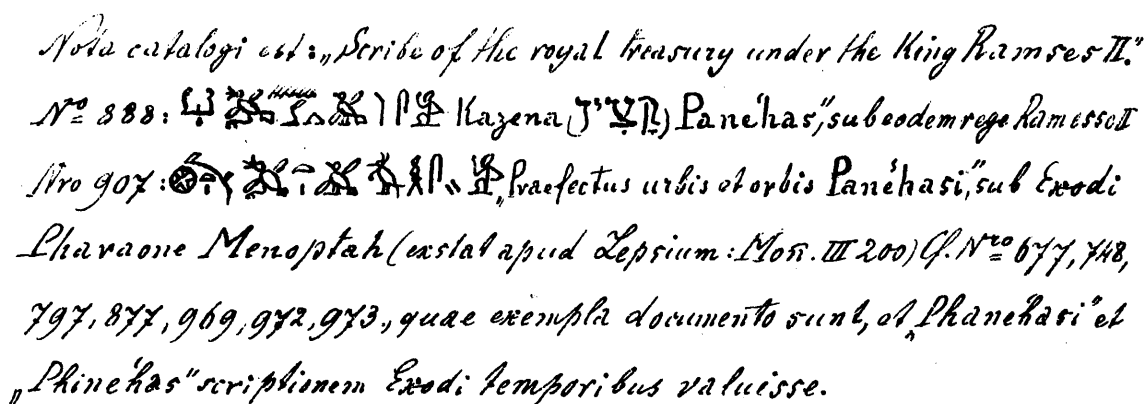 Nota catalogi est: „Scribe of the royal treasury under the King Ramses II."
Nro 888: Kazena (קצין) Panéhas", sub eodem rege Ramesse II
Nro 907: „Praefectus urbis et orbis Panéhasi", sub Exodi
Pharaone Menoptah (exstat apud Lepsium: Mon. III 200) Cf. Nro 677, 748,
797, 877, 969, 972, 973., quae exempla documento sunt, et „Phanéhasi" et
„Phinéhas" scriptionem Exodi temporibus valuisse.